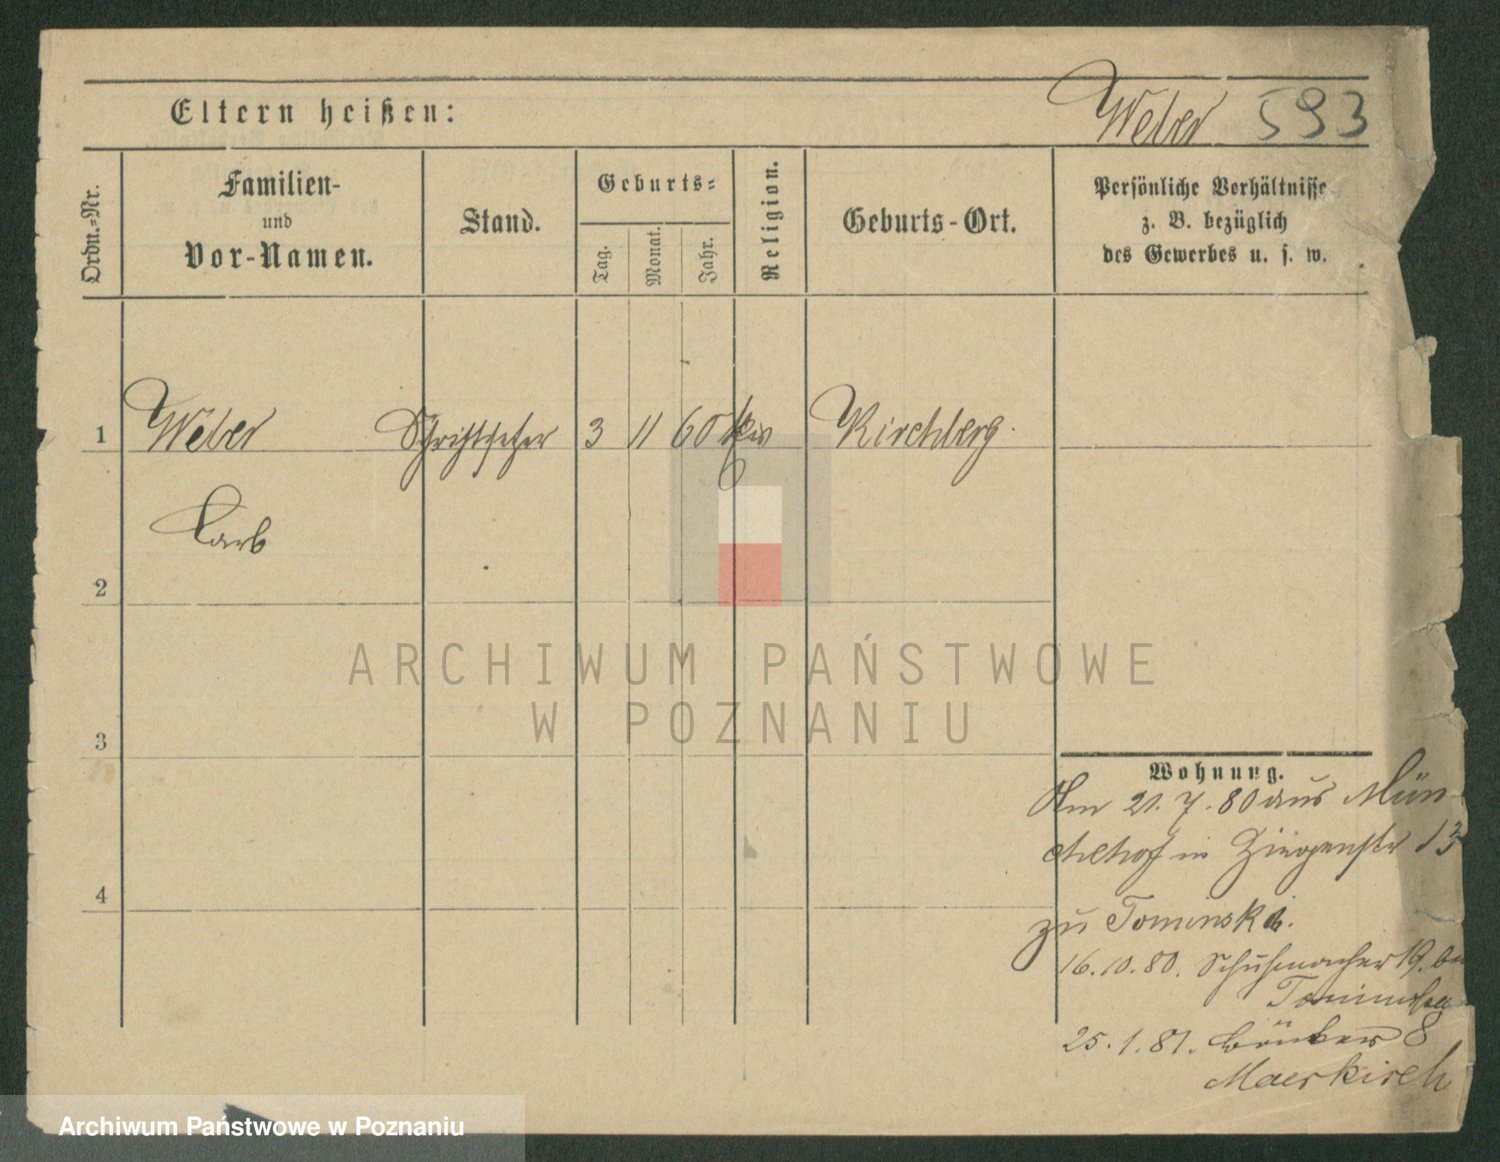 Eltern heißen:
Weber 593
Ordn.-Nr.
Familien-
und
Vor-Namen.
Stand.
Geburts-
Tag.
Monat.
Jahr.
Religion.
Geburts-Ort.
Persönliche Verhältnisse
z. B. bezüglich
des Gewerbes u. s. w.
1 Weber Schriftsetzer 3 11 60 Kirchberg.
Carl
2
3
4
Wohnung.
Am 21.7.80 aus Mün-
chehof in Ziegenstr 13
zu Tominski.
16.10.80. Schuhmacher 19. bei
Tominska
25.1.81. 8
Maerkisch
ARCHIWUM PAŃSTWOWE
W POZNANIU
Archiwum Państwowe w Poznaniu